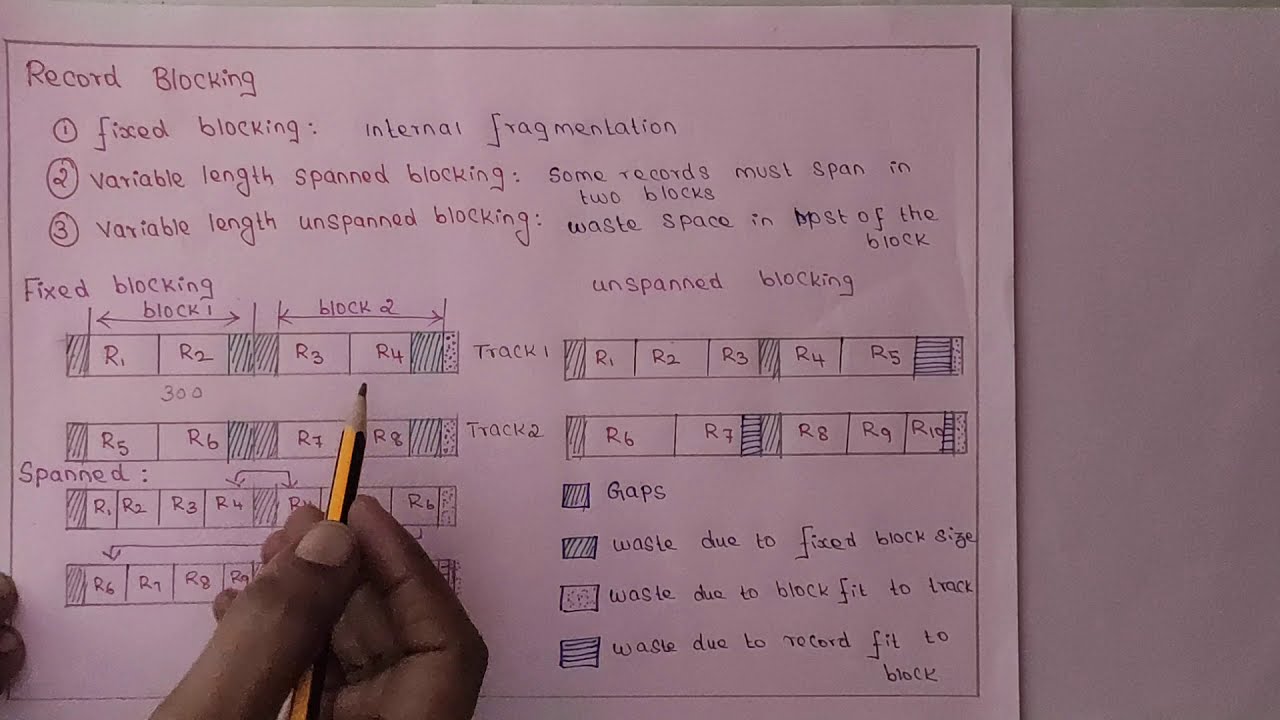 Record Blocking
① fixed blocking: Internal fragmentation
② Variable length spanned blocking: Some records must span in
two blocks
③ Variable length unspanned blocking: waste space in of the
block
Fixed blocking
block 1
block 2
R1 R2 R3 R4 Track 1
300
R5 R6 R7 R8 Track 2
Spanned:
R1 R2 R3 R4 R6
R6 R7 R8 R9
unspanned blocking
R1 R2 R3 R4 R5
R6 R7 R8 R9 R10
Gaps
waste due to fixed block size
waste due to block fit to track
waste due to record fit to
block